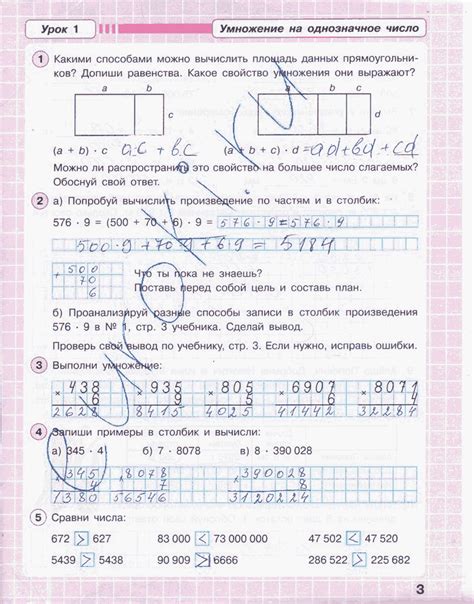 Урок 1 Умножение на однозначное число
1 Какими способами можно вычислить площадь данных прямоугольни-
ков? Допиши равенства. Какое свойство умножения они выражают?
a b a b d
c d
(a + b) · c a.c + b.c (a + b + c) · d = ad+bd+cd
Можно ли распространить это свойство на большее число слагаемых?
Обоснуй свой ответ.
2 а) Попробуй вычислить произведение по частям и в столбик:
576 · 9 = (500 + 70 + 6) · 9 = 576 · 9 = 576 · 9
500·9 + 70·9 + 6·9 = 5184
+ 500
70
6
Что ты пока не знаешь?
Поставь перед собой цель и составь план.
б) Проанализируй разные способы записи в столбик произведения
576 · 9 в № 1, стр. 3 учебника. Сделай вывод.
Проверь свой вывод по учебнику, стр. 3. Если нужно, исправь ошибки.
3 Выполни умножение:
× 438 × 935 × 805 × 6907 × 8071
6 9 5 6 4
2628 8415 4025 41442 32284
4 Запиши примеры в столбик и вычисли:
а) 345 · 4 б) 7 · 8078 в) 8 · 390 028
× 345 × 8078 × 390028
4 7 8
1380 56546 3120224
5 Сравни числа:
672 > 627 83 000 < 73 000 000 47 502 < 47 520
5439 > 5438 90 909 > 6666 286 522 > 225 682
3